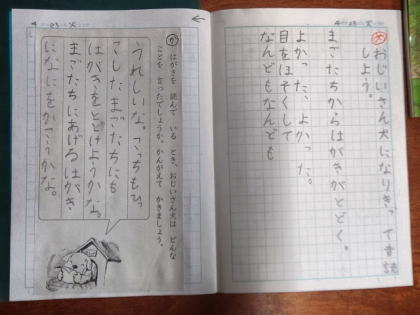 4/23(火)
おじいさん犬になりきって音読
しよう。
まごたちからはがきがとどく。
よかった、よかった。
目をほそくして
なんどもなんども
4/23(火)
はがきを 読んで いる とき、おじいさん犬は どんな
ことを 言ったでしょうか。かんがえて かきましょう。
うれしいな。こっちもひっ
こしたまごたちにも
はがきをとどけようかな。
まごたちにあげるはがき
になにをかこうかな。